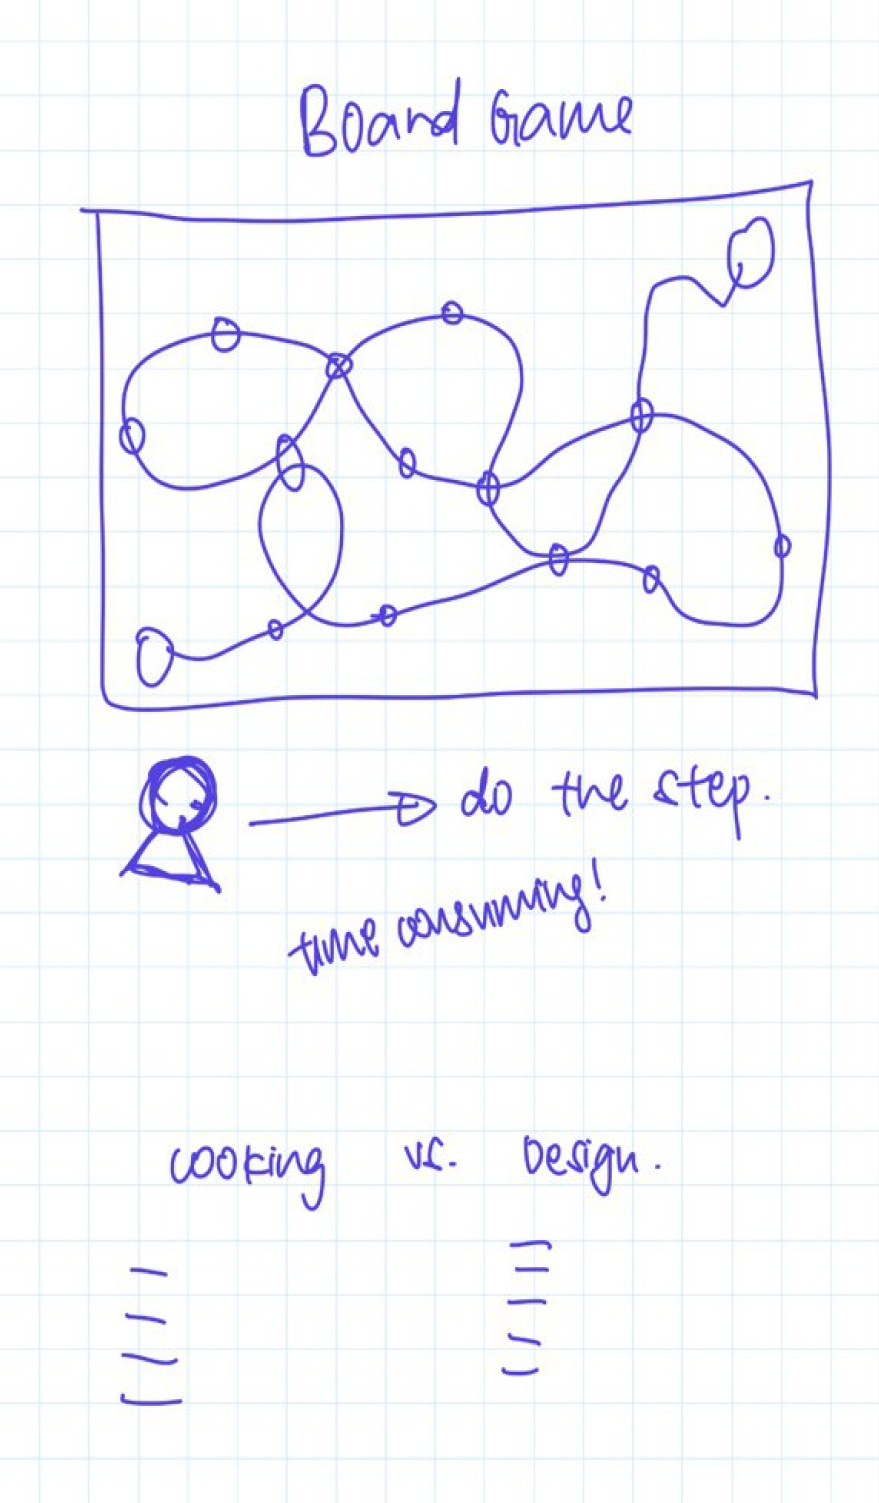 Board Game
do the step.
time consuming!
cooking vs. Design.